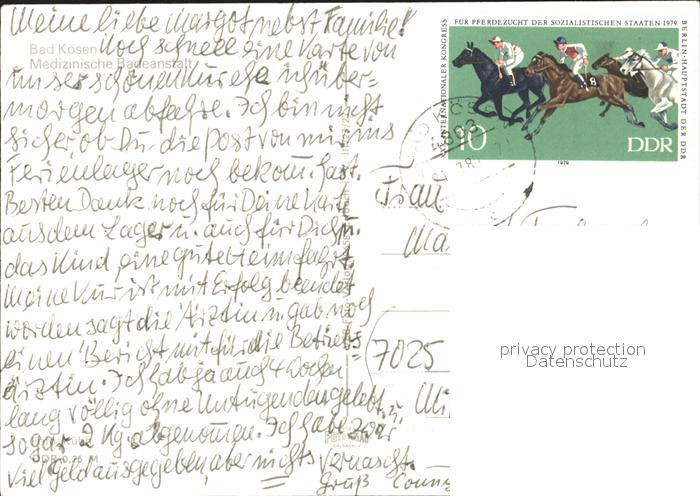 Meine liebe Margot nebst Familie!
Bad Kösen
Medizinische Badeanstalt
Noch schnell eine Karte von
unserer schönen Kur ehe ich über-
morgen abfahre. Ich bin nicht
sicher ob Du die Post von mir ins
Ferienlager noch bekom. hast.
Besten Dank noch für Deine Karte
aus dem Lager u. auch für Dich u.
das Kind eine gute Heimfahrt.
Meine Kur ist mit Erfolg beendet
worden sagt die Ärztin u. gab noch
einen Bericht mit für die Betriebs-
ärztin. Ich hab ja auch 4 Wochen
lang völlig ohne Untugenden gelebt u.
sogar 2 kg. abgenomen. Ich habe zwar
viel Geld ausgegeben, aber nichts vernascht.
Gruß Conny
XXX. INTERNATIONALER KONGRESS FÜR PFERDEZUCHT DER SOZIALISTISCHEN STAATEN 1979
BERLIN-HAUPTSTADT DER DDR
8
10
DDR
1979
Frau
7025
privacy protection
Datenschutz